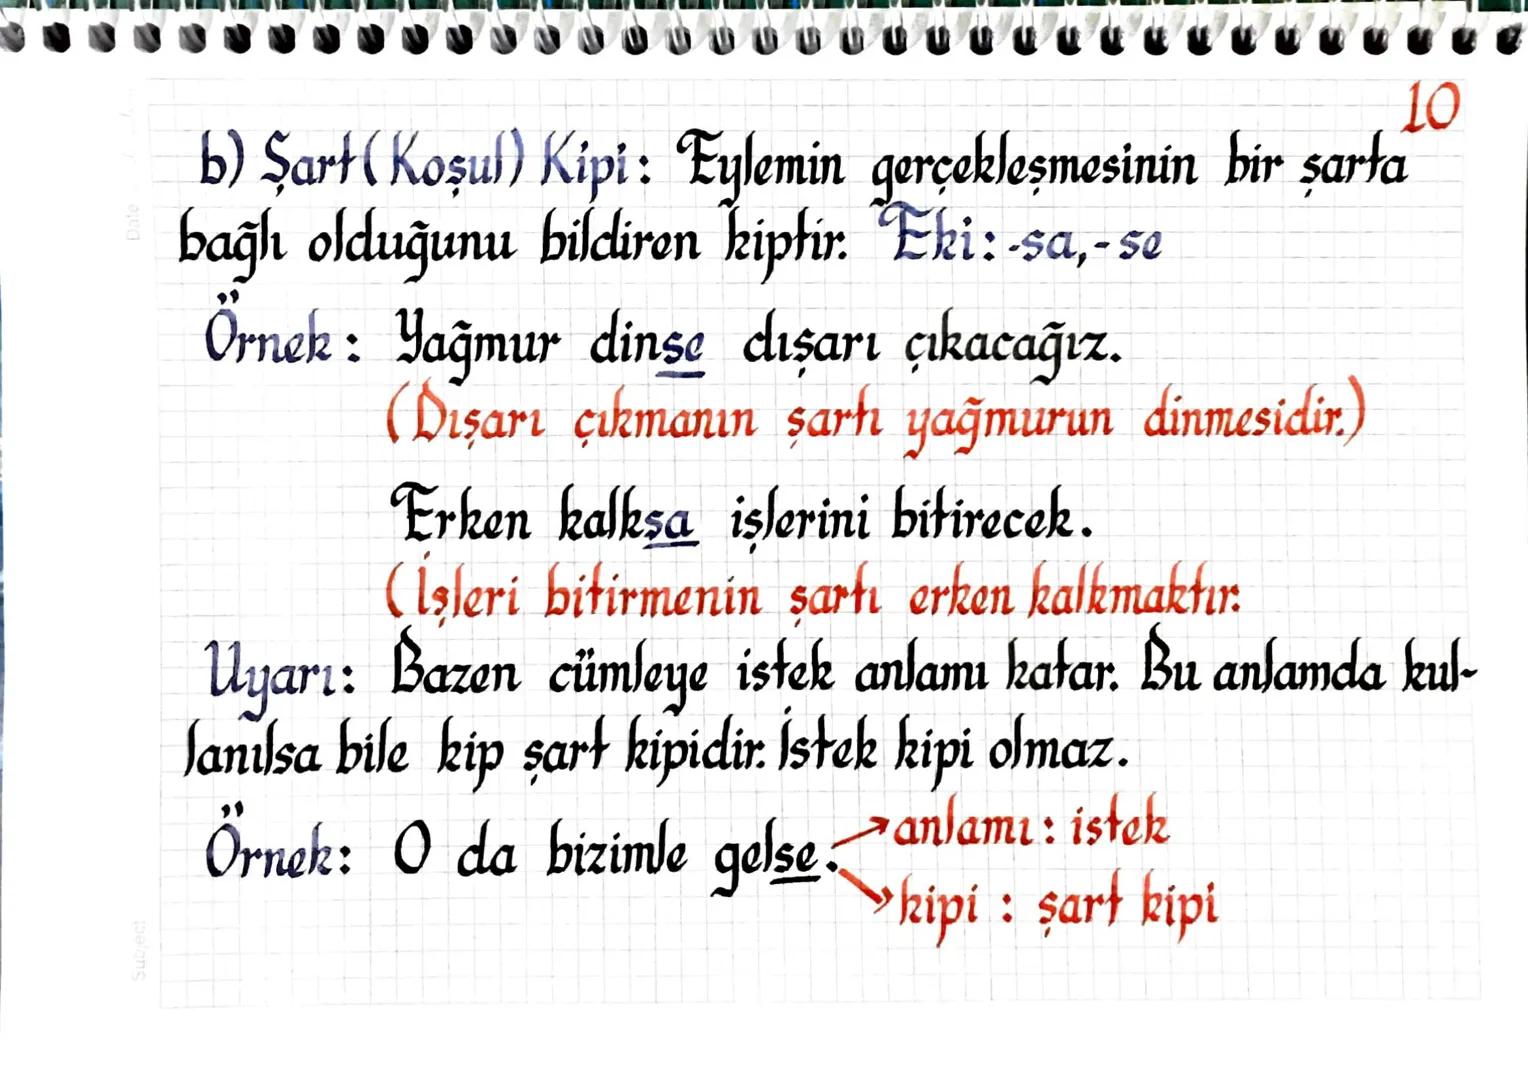 10
b) Şart (Koşul) Kipi: Eylemin gerçekleşmesinin bir şarta
bağlı olduğunu bildiren kiptir. Eki: -sa, -se
Örnek: Yağmur dinse dışarı çıkacağız.
(Dışarı çıkmanın şartı yağmurun dinmesidir.)
Erken kalksa işlerini bitirecek.
(İşleri bitirmenin şartı erken kalkmaktır.
Uyarı: Bazen cümleye istek anlamı katar. Bu anlamda kul-
lanılsa bile kip şart kipidir. İstek kipi olmaz.
Örnek: O da bizimle gelse.
anlamı: istek
kipi : şart kipi
Date
Subject